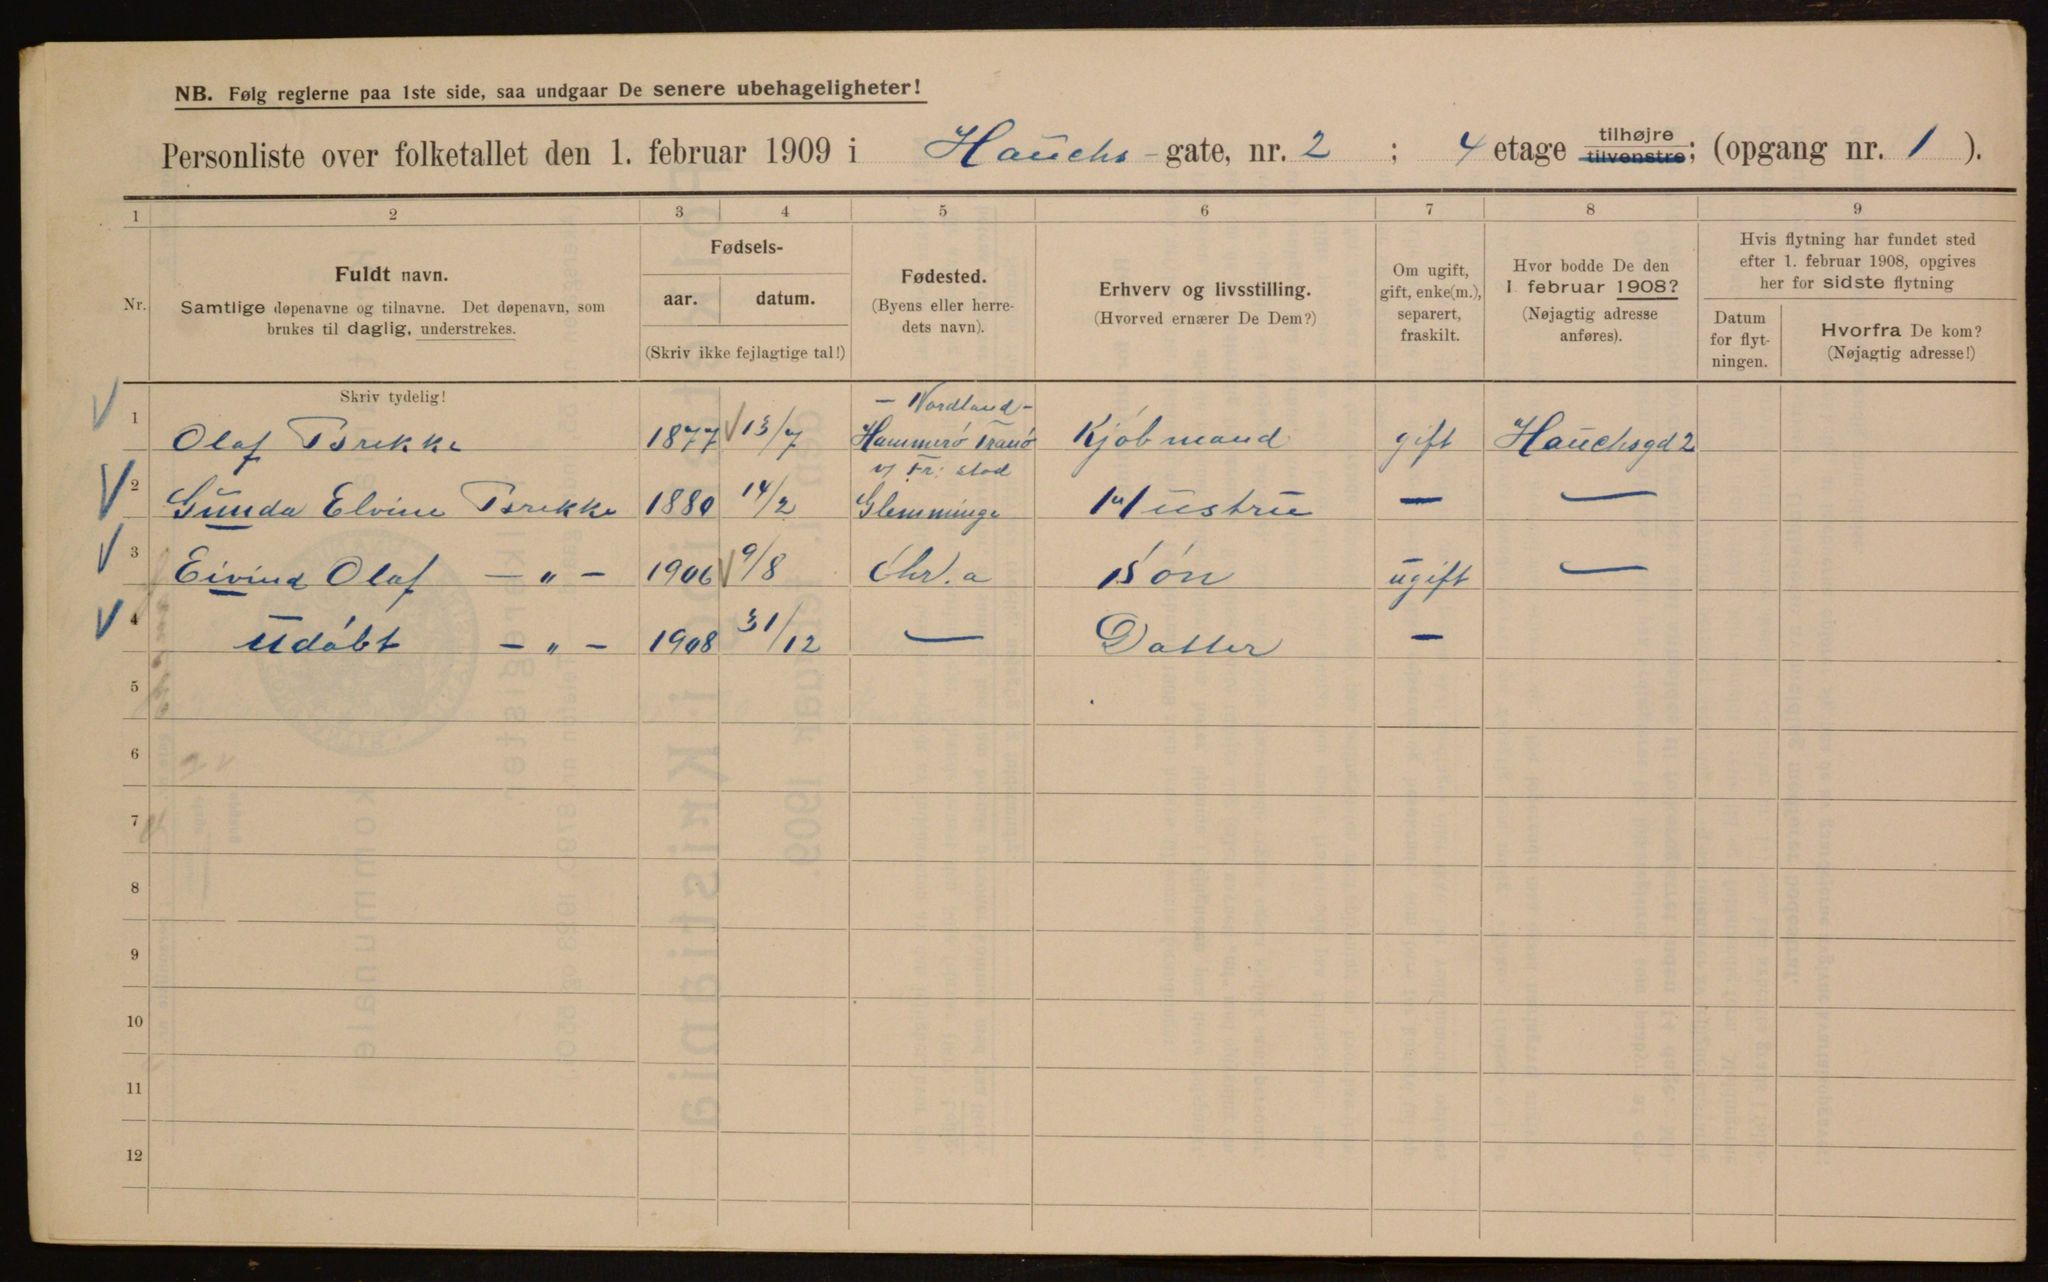 NB. Følg reglerne paa 1ste side, saa undgaar De senere ubehageligheter!
Personliste over folketallet den 1. februar 1909 i Hauchs-gate, nr. 2 ; 4 etage tilhøjre tilvenstre; (opgang nr. 1 ).
1 2 3 4 5 6 7 8 9
Nr.
Fuldt navn.
Samtlige døpenavne og tilnavne. Det døpenavn, som
brukes til daglig, understrekes.
Fødsels-
aar. datum.
(Skriv ikke fejlagtige tal!)
Fødested.
(Byens eller herre-
dets navn).
Erhverv og livsstilling.
(Hvorved ernærer De Dem?)
Om ugift,
gift, enke(m.),
separert,
fraskilt.
Hvor bodde De den
1. februar 1908?
(Nøjagtig adresse
anføres).
Hvis flytning har fundet sted
efter 1. februar 1908, opgives
her for sidste flytning
Datum
for flyt-
ningen.
Hvorfra De kom?
(Nøjagtig adresse!)
Skriv tydelig!
- Nordland -
1 Olaf Brekke 1877 13/7 Hammerö Tranö Kjøbmand gift Hauchsgd 2
v/ Fr: stad
2 Gunda Elvine Brekke 1880 14/2 Glemminge Hustru — —
3 Eivind Olaf — „ — 1906 9/8 Chr.a Søn ugift —
4 Udøbt — „ — 1908 31/12 — Datter —
5
6
7
8
9
10
11
12